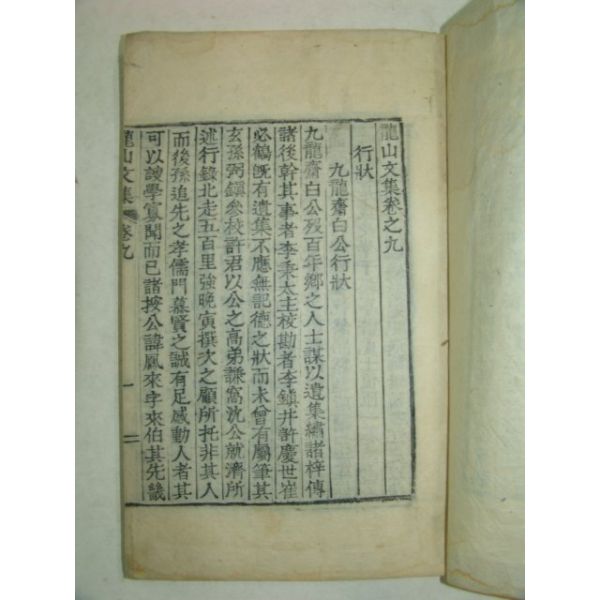 龍山文集卷之九
行狀
九龍齋白公行狀
九龍齋白公歿百年鄉之人士謀以遺集繡諸梓傳
諸後幹其事者李秉太主校勘者李鎭井許慶世崔
必鶴旣有遺集不應無記德之狀而未曾有屬筆其
玄孫弼鎭參校許君以公之高弟謙窩沈公就濟所
述行錄北走五百里強晩寅撰次之顧所托非其人
而後孫追先之孝儒門慕賢之誠有足感動人者其
可以謏學寡聞而已諸按公諱鳳來字來伯其先畿
龍山文集 卷九 一